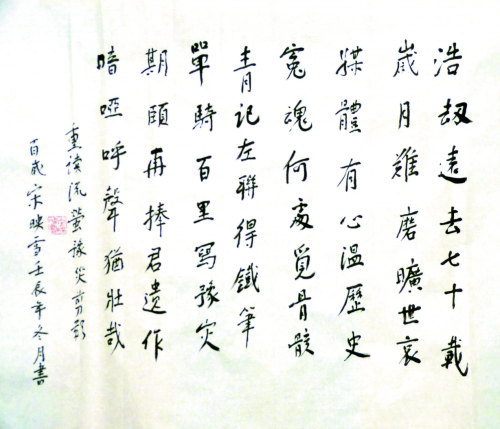 浩劫遠去七十載
歲月難磨曠世哀
媒體有心溫歷史
冤魂何處覓骨骸
青記左聯得鐵筆
單騎百里寫豫災
期頤再捧君遺作
暗啞呼聲猶壯哉
重讀流螢豫災剪影
百歲宋映雪壬辰年冬月書